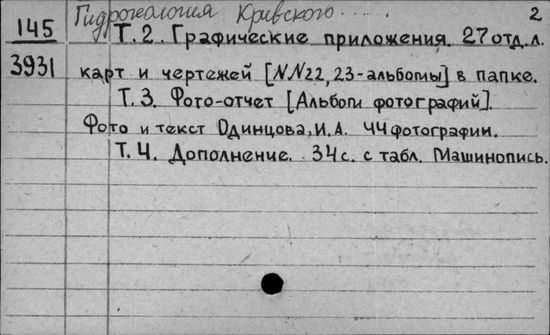 Гидрогеология Кривского..... 2
145 Т.2. Графические приложения. 27 отд.л.
3931 карт и чертежей [NN22, 23-альбомы] в папке.
Т. 3. Фото-отчет [Альбом фотографий].
Фото и текст Одинцова, И.А. 44 фотографии.
Т. 4. Дополнение. 34 с. с табл. Машинопись.